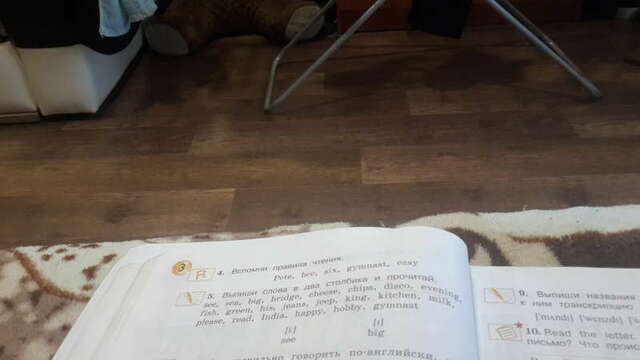 3
R 4. Вспомни правила чтения.
Pete, bee, six, gymnast, easy
5. Выпиши слова в два столбика и прочитай.
see, sea, big, bridge, cheese, chips, disco, evening,
fish, green, his, jeans, jeep, king, kitchen, milk,
please, read, India, happy, hobby, gymnast
[i:] [ı]
see big
правильно говорить по-английски,
9. Выпиши названия
к ним транскрипцию
10. Read the letter
письмо? Что